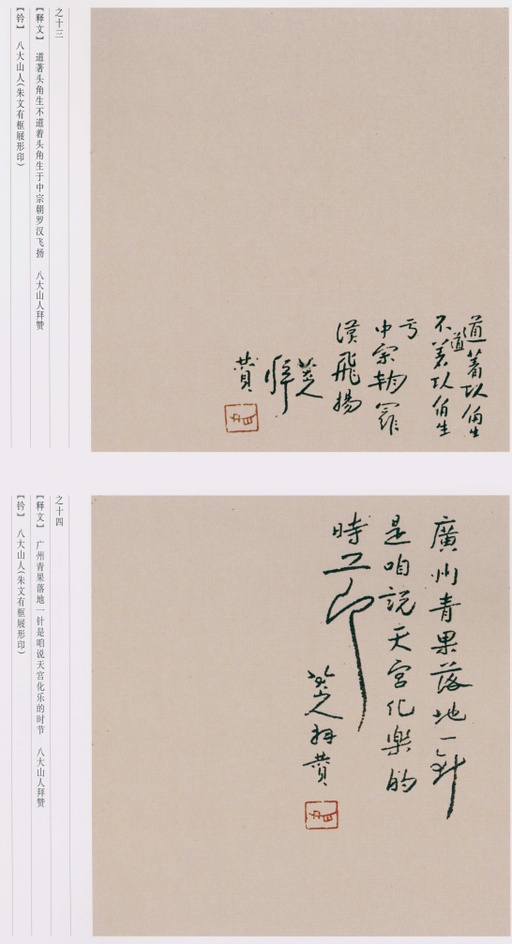 之十三
【释文】 道著头角生不道着头角生于中宗朝罗汉飞扬 八大山人拜赞
【钤】 八大山人(朱文有框屐形印)
道著
不道着
亏
中宗朝羅
漢飛揚
贊
之十四
【释文】 广州青果落地一针是咱说天宫化乐的时节 八大山人拜赞
【钤】 八大山人(朱文有框屐形印)
廣州青果落地一針
是咱説天宮化樂的
時
八大山人拜贊